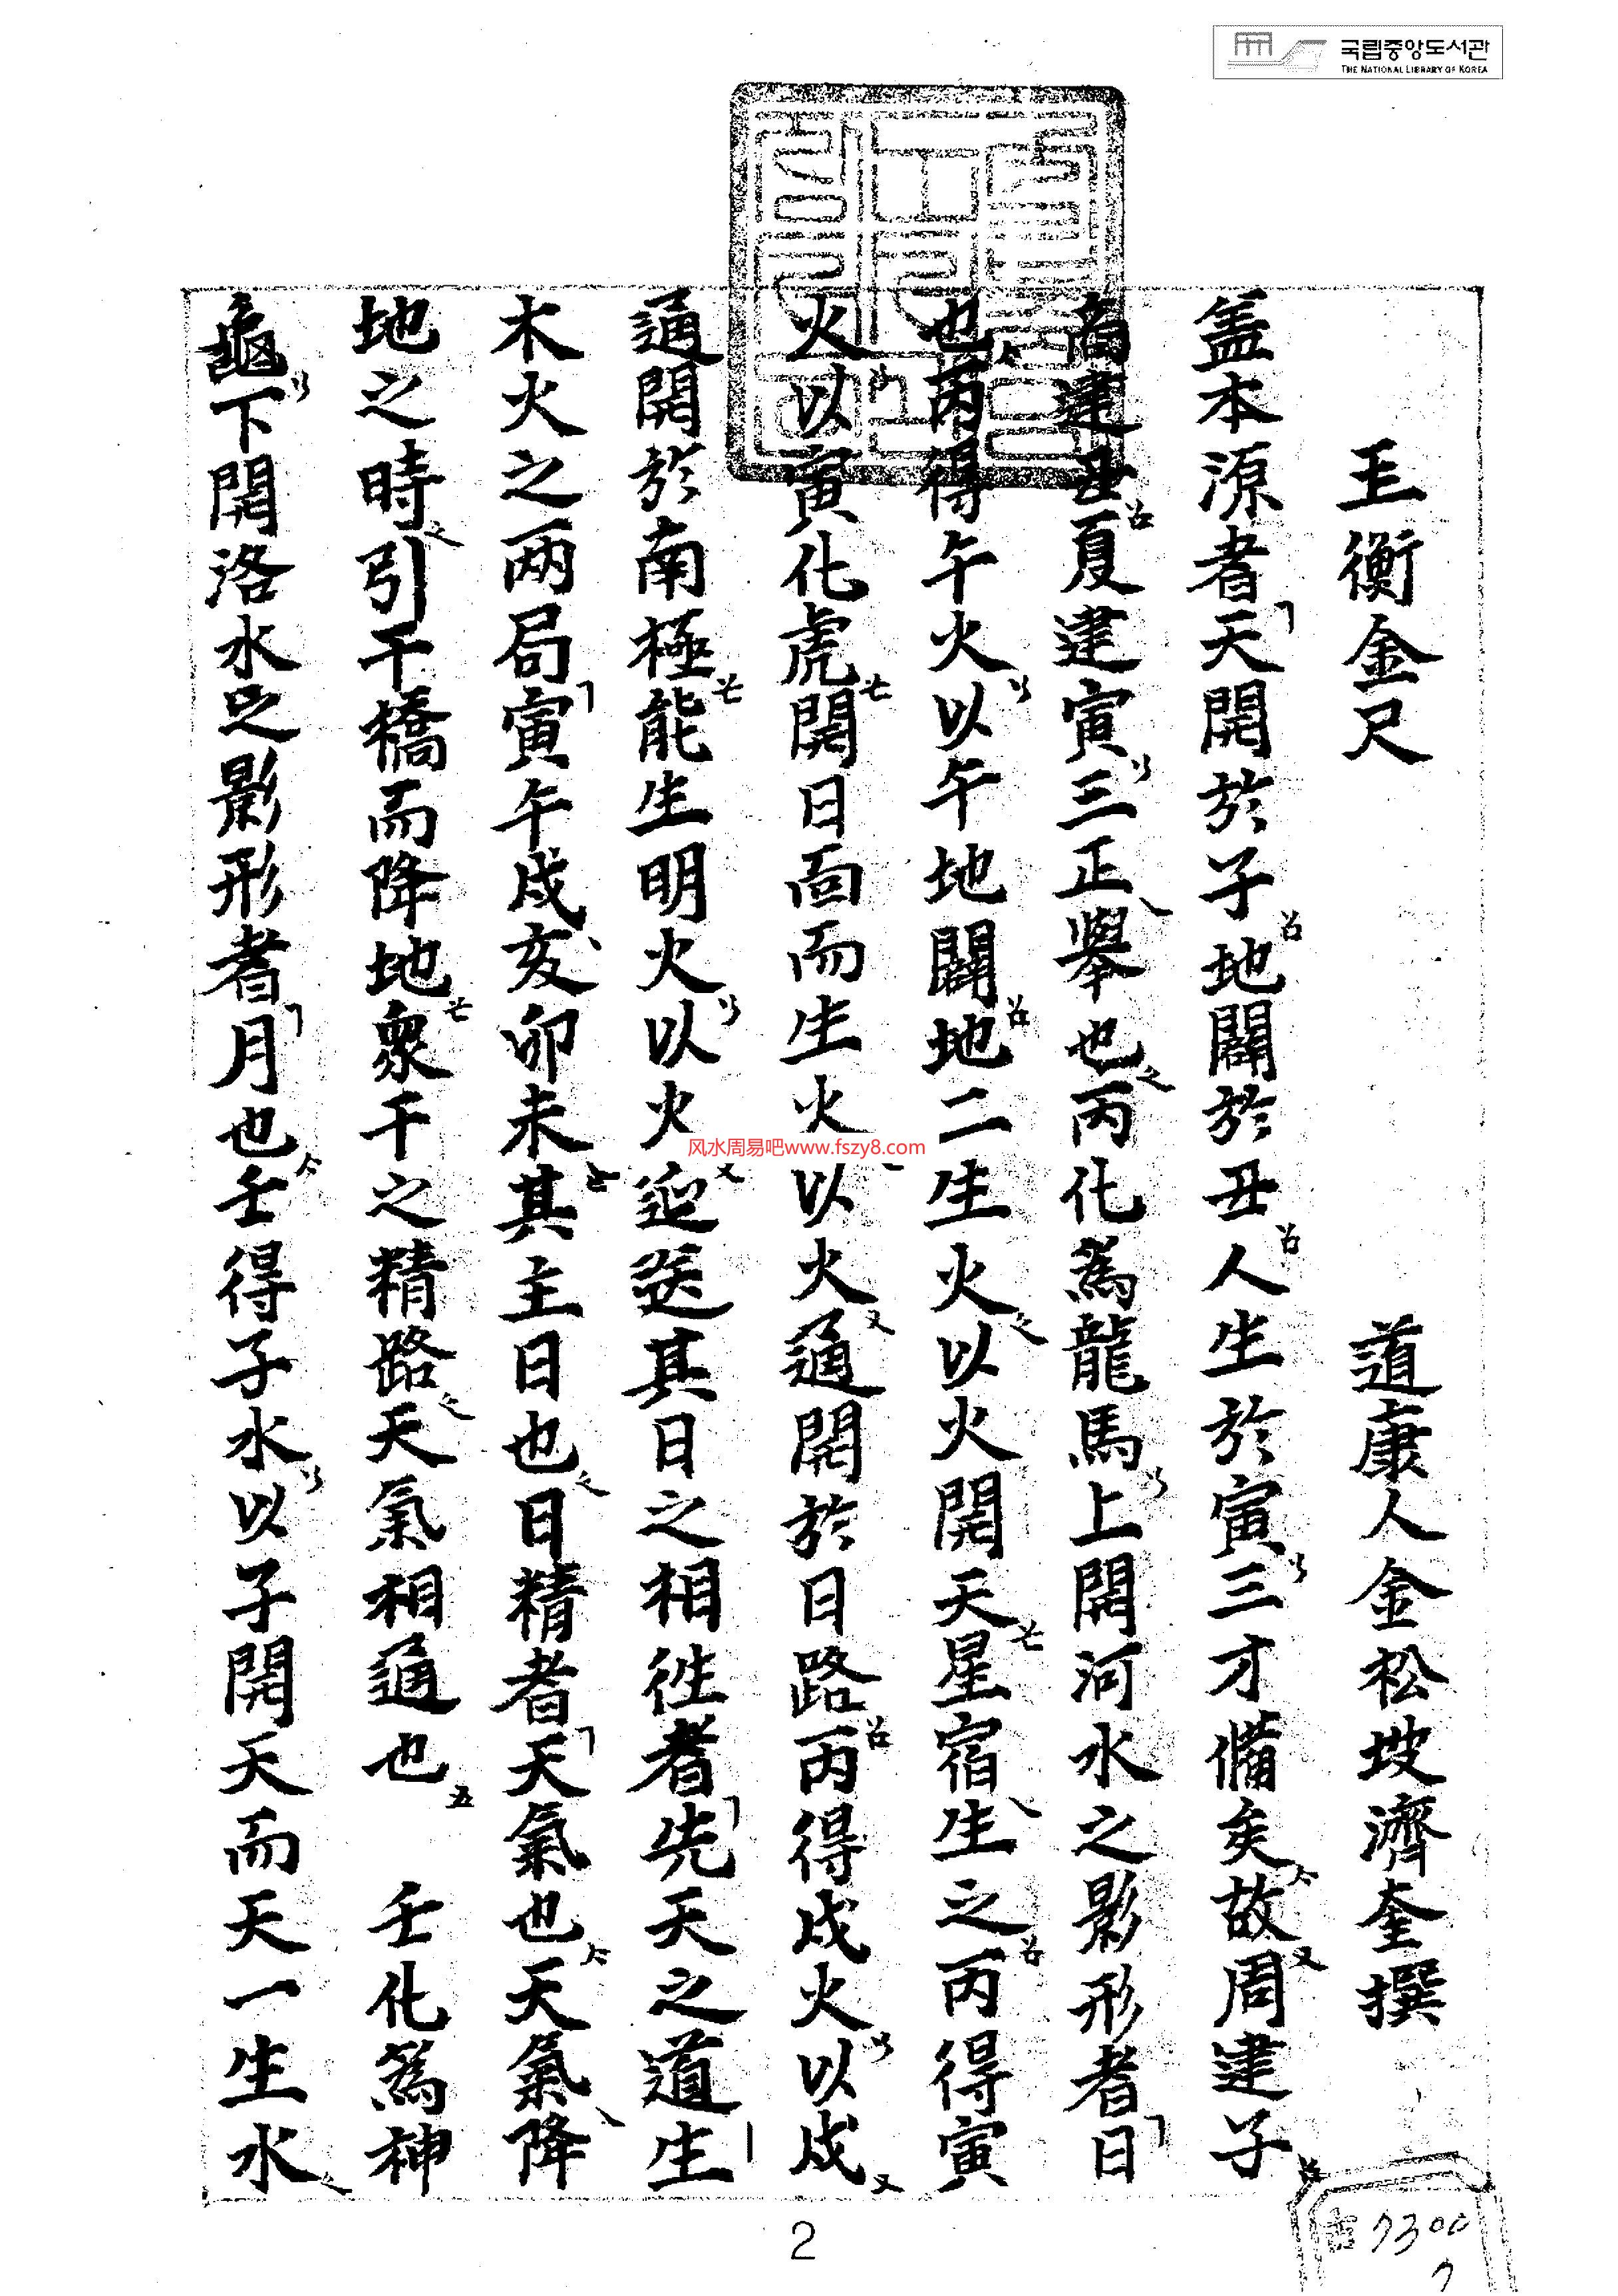 국립중앙도서관
THE NATIONAL LIBRARY OF KOREA
玉衡金尺 道康人金松坡濟奎撰
盖本源者天開於子地闢於丑人生於寅三才備矣故周建子
商建丑夏建寅三正擧也丙化爲龍馬上開河水之影形者日
也丙得午火以午地闢地二生火以火開天星宿生之丙得寅
火以寅化虎開日面而生火以火通開於日路丙得戌火以戌
通開於南極能生明火以火迎送其日之相徃者先天之道生
木火之两局寅午戌亥卯未其主日也日精者天氣也天氣降
地之時引干橋而降地衆干之精路天氣相通也 壬化爲神
龜下開洛水之影形者月也壬得子水以子開天而天一生水
风水周易吧www.fszy8.com
2
古7300
7